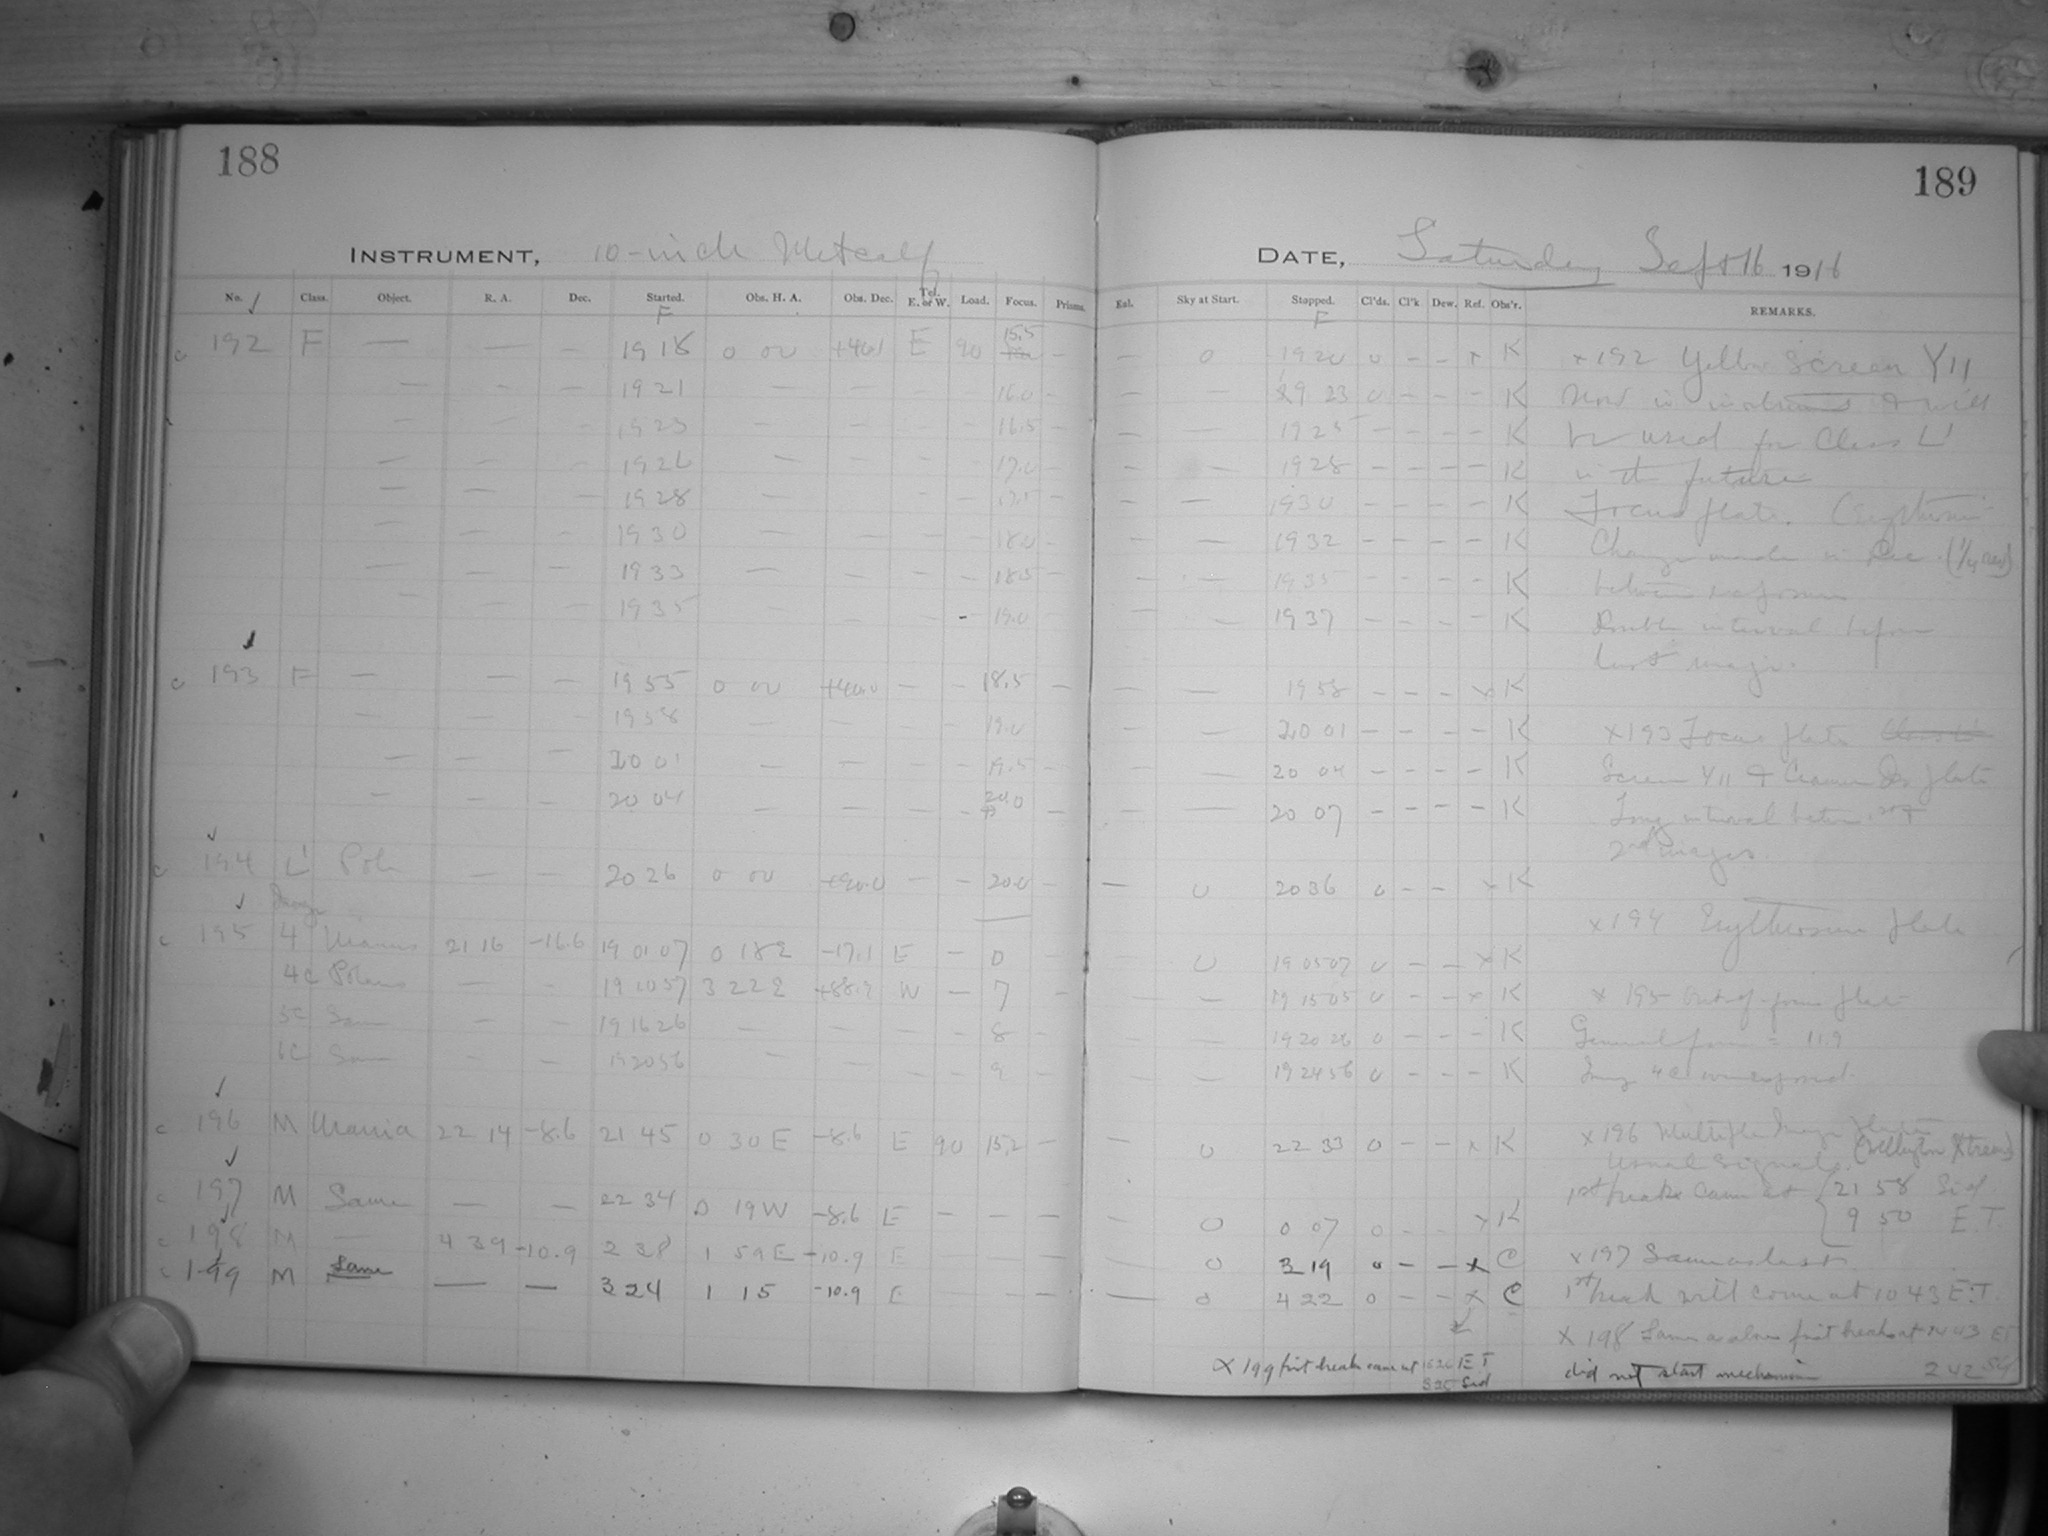 188
189
INSTRUMENT, 10-inch Metcalf
DATE, Saturday Sept 16 1916
No. Class. Object. R. A. Dec. Started. Obs. H. A. Obs. Dec. Tel. E. or W. Load. Focus. Prisms. Eal. Sky at Start. Stopped. Cl'ds. Cl'k Dew. Ref. Obs'r. REMARKS.
F F
c 192 F — — — 19 18 0 00 E 90 15.5 — — 0 19 20 0 — — x K x 192 Yellow Screen Y11
— — — 19 21 — — — — 16.0 — — — 19 23 0 — — — K
— — — 19 23 — — — — 16.5 — — — 19 25 — — — — K be used for Class L'
— — — 19 26 — — — — 17.0 — — — 19 28 — — — — K in the future
— — — 19 28 — — — — 17.5 — — — 19 30 — — — — K Focus plate.
— — — 19 30 — — — — 18.0 — — — 19 32 — — — — K Change made in Dec.
— — — 19 33 — — — — 18.5 — — — 19 35 — — — — K between
— — — 19 35 — — — — 19.0 — — 19 37 — — — — K Double interval before
last image.
c 193 F — — — 19 55 0 00 +40.0 — — 18.5 — — — 19 58 — — — x K
— — — 19 58 — — — — 19.0 — — 20 01 — — — — K x 193 Focus plate
— — — 20 01 — — — — 19.5 — — 20 04 — — — — K Screen Y11 & Cramer Iso plate
— — — 20 04 — — — — 20.0 — — 20 07 — — — — K Long interval between 1st &
2nd images.
c 194 L' Pole — — 20 26 0 00 +90.0 — — 20.0 — — 0 20 36 0 — — x K
x 194 Erythrosin plate
c 195 4 Uranus 21 16 -16.6 19 01 07 0 18 E -17.1 E — 0 — 0 19 05 07 0 — — x K
4c Polaris — — 19 10 57 3 22 E W — 7 — — 19 15 05 0 — — x K x 195 Out-of-focus plate
5c Same — — 19 16 26 — — — — 8 — — 19 20 26 0 — — — K
6c Same — — 19 20 56 — — — — 9 — — 19 24 56 0 — — — K
c 196 M Urania 22 14 -8.6 21 45 0 30 E -8.6 E 90 15.2 — — 0 22 33 0 — — x K x 196 Multiple Image
Usual signals.
c 197 M Same — — 22 34 0 19 W -8.6 E — — — — 0 0 07 0 — — x K 1st break came at 21 58 Sid
9 50 E.T.
c 198 M — 4 39 -10.9 2 38 1 59 E -10.9 E 0 3 19 0 — — x C x 197 Same as last
c 199 M Same — — 3 24 1 15 -10.9 E — — — — 0 4 22 0 — — x C 1st break will come at 10 43 E.T.
x 198 Same as above first break at
x 199 first break came at E T
Sid
did not start mechanism 2 42 Sid